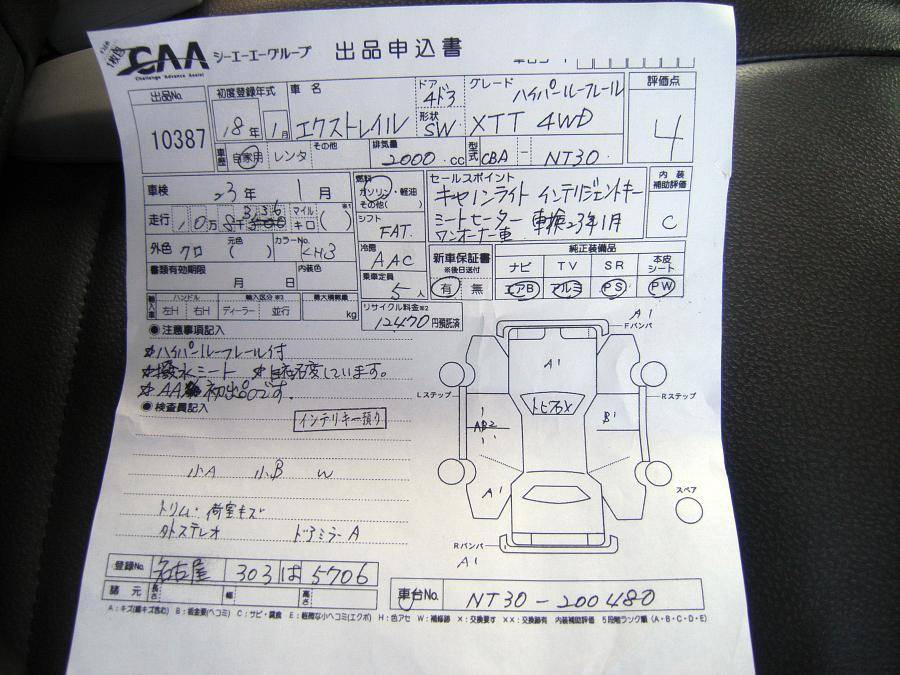 CAA シーエーエーグループ 出品申込書
Challenge Advance Assist
出品No. 初度登録年式 車名 ドア グレード 評価点
10387 18年 1月 エクストレイル 4ドア ハイパールーフレール 4
形状 SW XTT 4WD
車歴 自家用 レンタ その他 排気量 2000 cc 型式 CBA - NT30
車検 23年 1月 燃料 ガソリン・軽油 その他( ) セールスポイント 内装補助評価
キセノンライト インテリジェントキー C
走行 10万 マイル キロ ( ) シフト FAT シートヒーター 車検23年1月
ワンオーナー車
外色 クロ 元色 ( ) カラーNo. KH3 冷房 AAC 新車保証書 純正装備品
※後日送付 ナビ TV SR 本皮シート
書類有効期限 月 日 内装色 乗車定員 5人 有 無 エアB アルミ PS PW
輸入車 ハンドル 左H 右H 輸入区分※3 ディーラー 並行 最大積載量 kg リサイクル料金※2 12470 円預託済
注意事項記入
☆ハイパールーフレール付
☆撥水シート
しています。
☆AA初出品です。
検査員記入
インテリキー預り
小A 小B W
トリム・荷室キズ
外ステレオ ドアミラーA
A1 Fバンパ
A1
Lステップ Rステップ
トビ石X
B1
A1
スペア
Rバンパ
A1
登録No. 名古屋 303 は 5706
諸元 長さ 幅 高さ 車台No. NT30-200480
A：キズ(線キズ含む) B：鈑金要(ヘコミ) C：サビ・腐食 E：軽微な小ヘコミ(エクボ) H：色アセ W：補修跡 X：交換要す XX：交換跡有 内装補助評価 5段階ランク順(A・B・C・D・E)